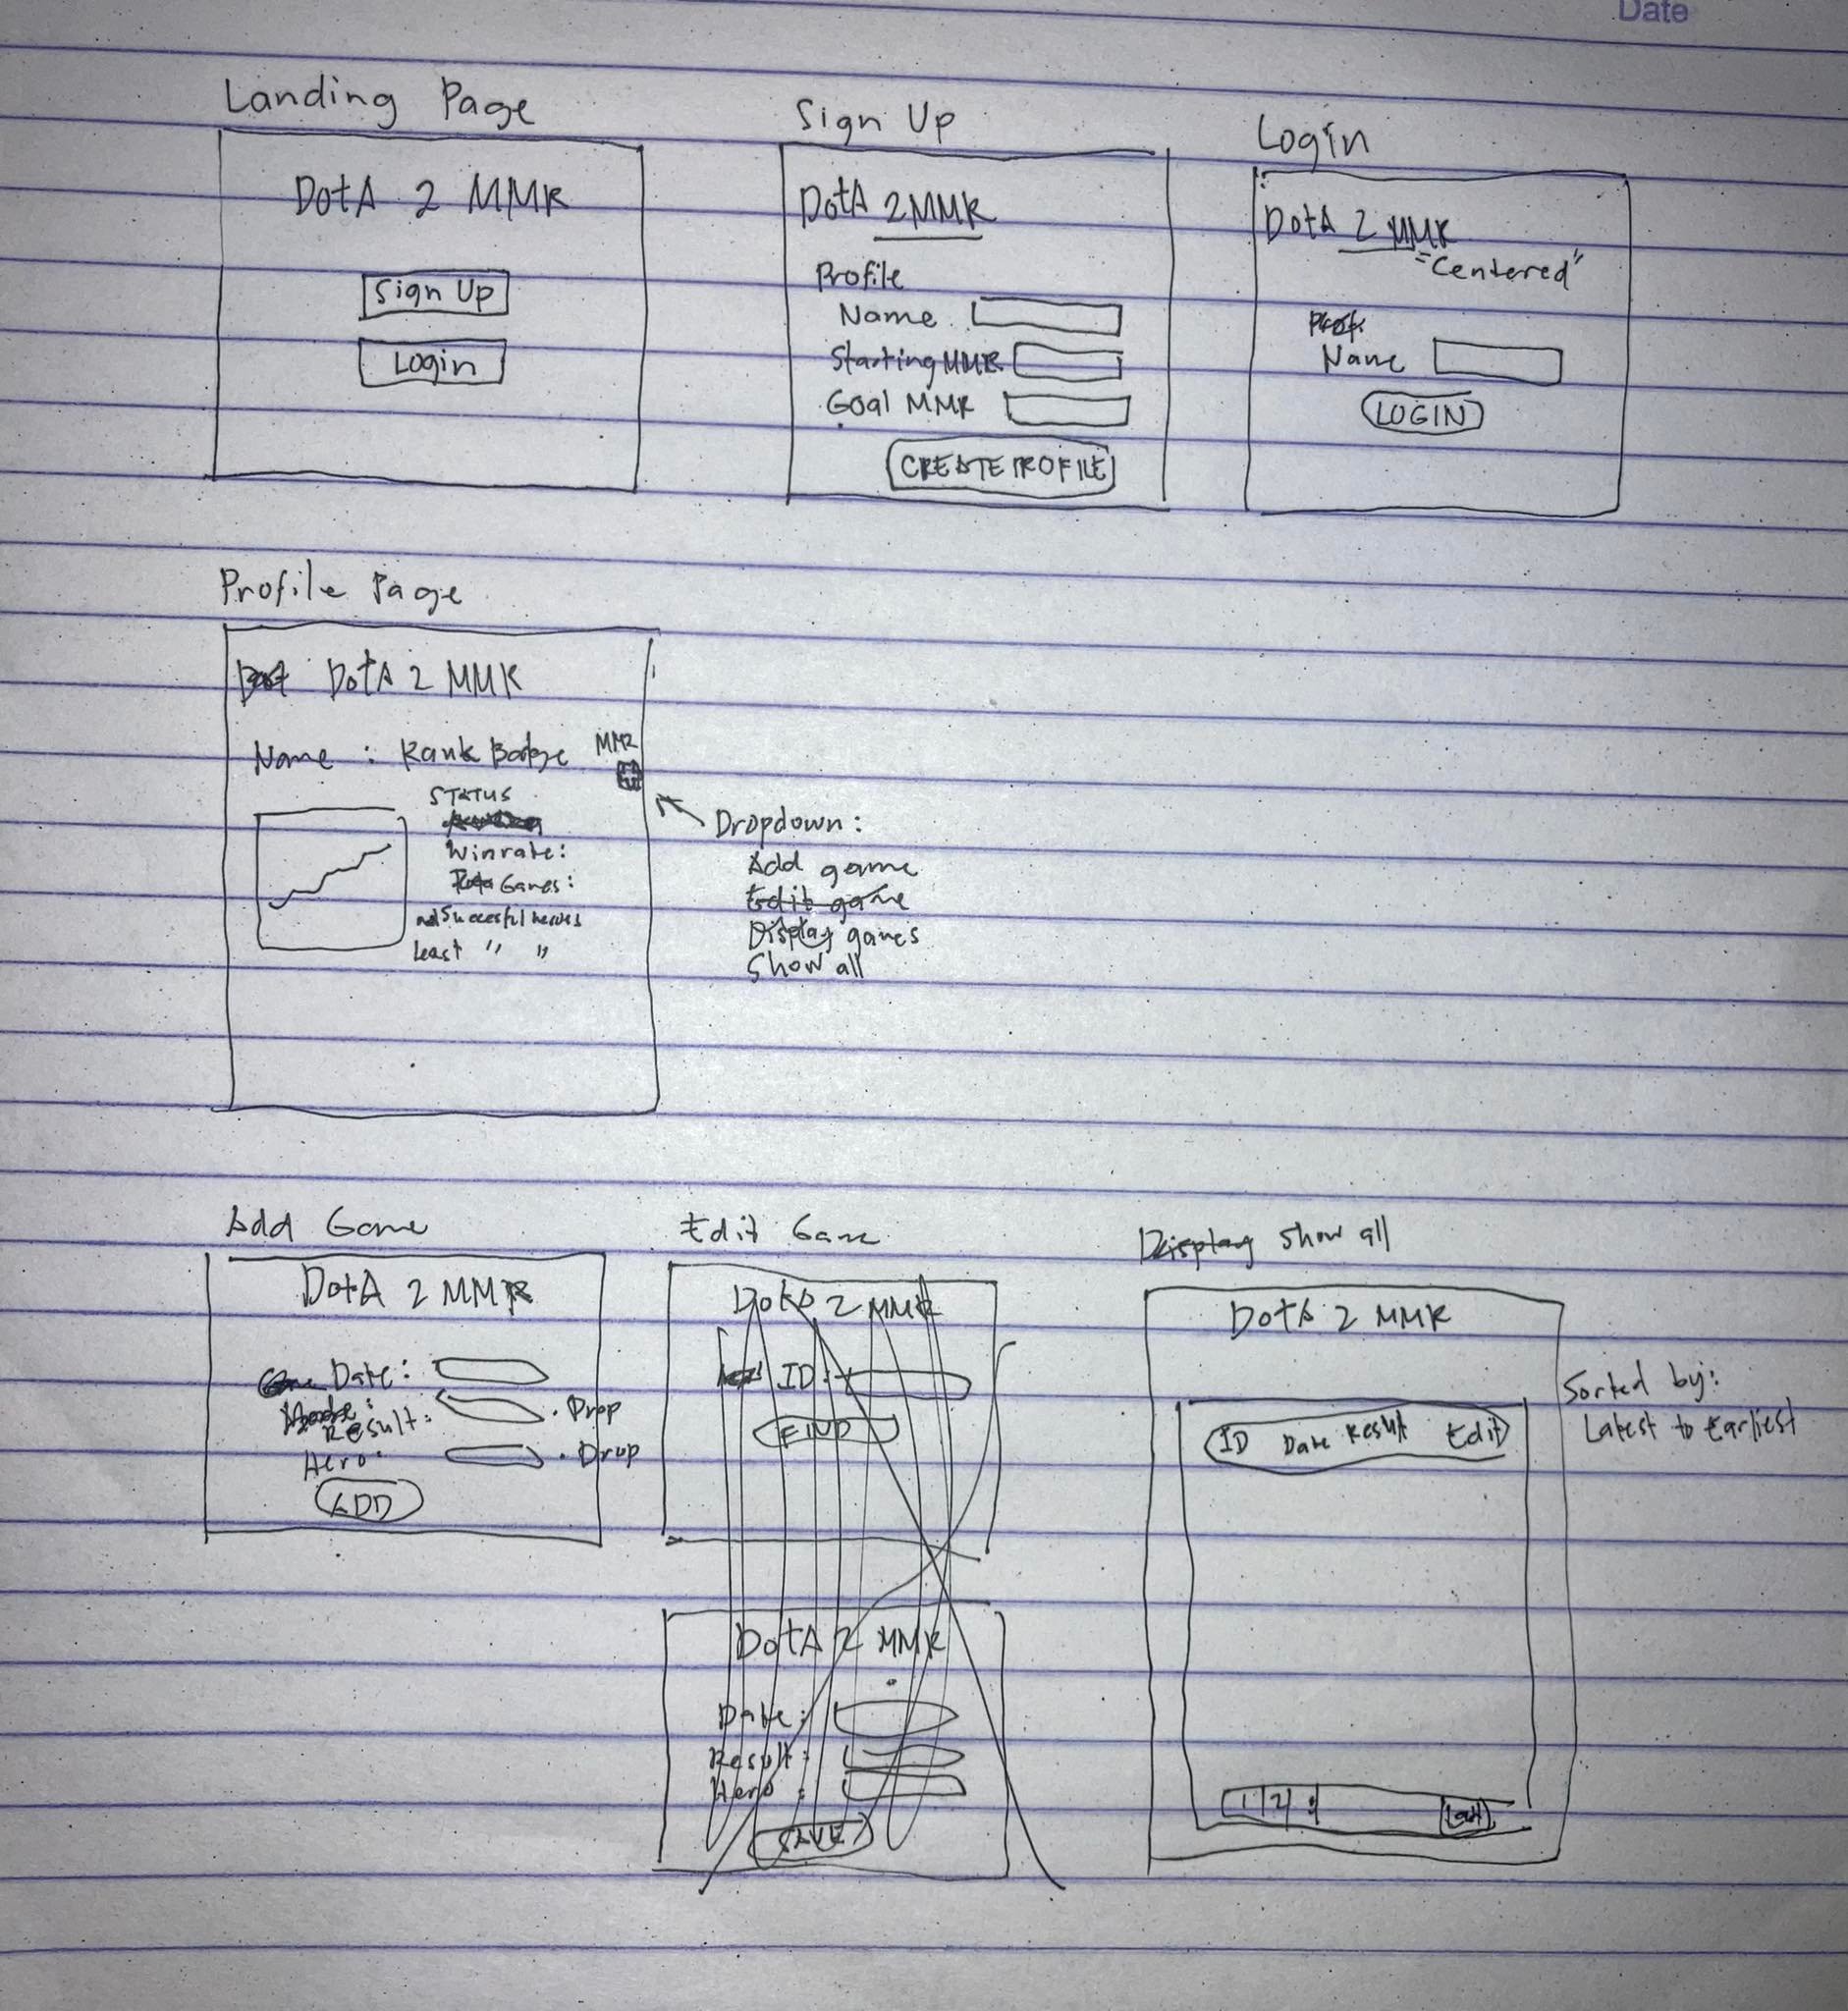 Date
Landing Page
DotA 2 MMR
Sign Up
Login
Sign Up
DotA 2 MMR
Profile
Name
Starting MMR
Goal MMR
CREATE PROFILE
Login
DotA 2 MMR
"Centered"
Name
LOGIN
Profile Page
DotA 2 MMR
Name : Rank Badge MMR
STATUS
Winrate:
Games:
Succesful heroes
Least " "
Dropdown:
Add game
Edit game
Display games
Show all
Add Game
DotA 2 MMR
Date:
Result: . Drop
Hero: . Drop
ADD
Edit Game
DotA 2 MMR
ID:
FIND
DotA 2 MMR
Date:
Result:
Hero :
SAVE
Display Show all
DotA 2 MMR
Sorted by:
Latest to Earliest
ID Date Result Edit
1 2
Last